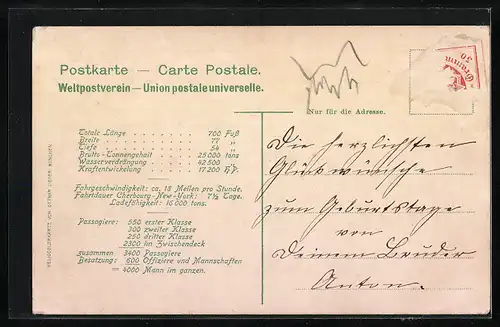 Postkarte — Carte Postale.
Weltpostverein — Union postale universelle.
Nur für die Adresse.
Totale Länge . . . . . . . . 700 Fuß
Breite . . . . . . . . 77 „
Tiefe . . . . . . . . 54 „
Brutto-Tonnengehalt . . . . . 25 000 tons
Wasserverdrängung . . . . . 42 500 „
Kraftentwickelung . . . . . 17 200 H.P.
Fahrgeschwindigkeit: ca. 18 Meilen pro Stunde.
Fahrtdauer Cherbourg-New-York: 7½ Tage.
Ladefähigkeit: 16 000 tons.
Passagiere: 550 erster Klasse
300 zweiter Klasse
250 dritter Klasse
2300 im Zwischendeck
zusammen 3400 Passagiere
Besatzung: 600 Offiziere und Mannschaften
= 4000 Mann im ganzen.
Die herzlichsten
Glückwünsche
zum Geburtstage
von
Deinem Bruder
Anton.
Gramm
50